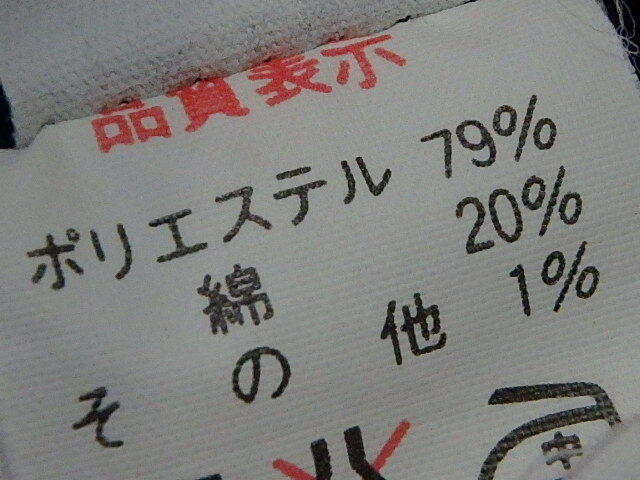 品質表示
ポリエステル 79%
綿 20%
その他 1%
中